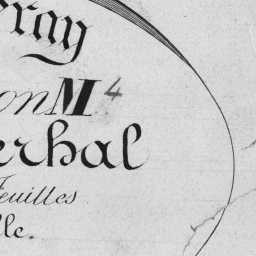 ray
on M 4
erhal
Feuilles
lle.